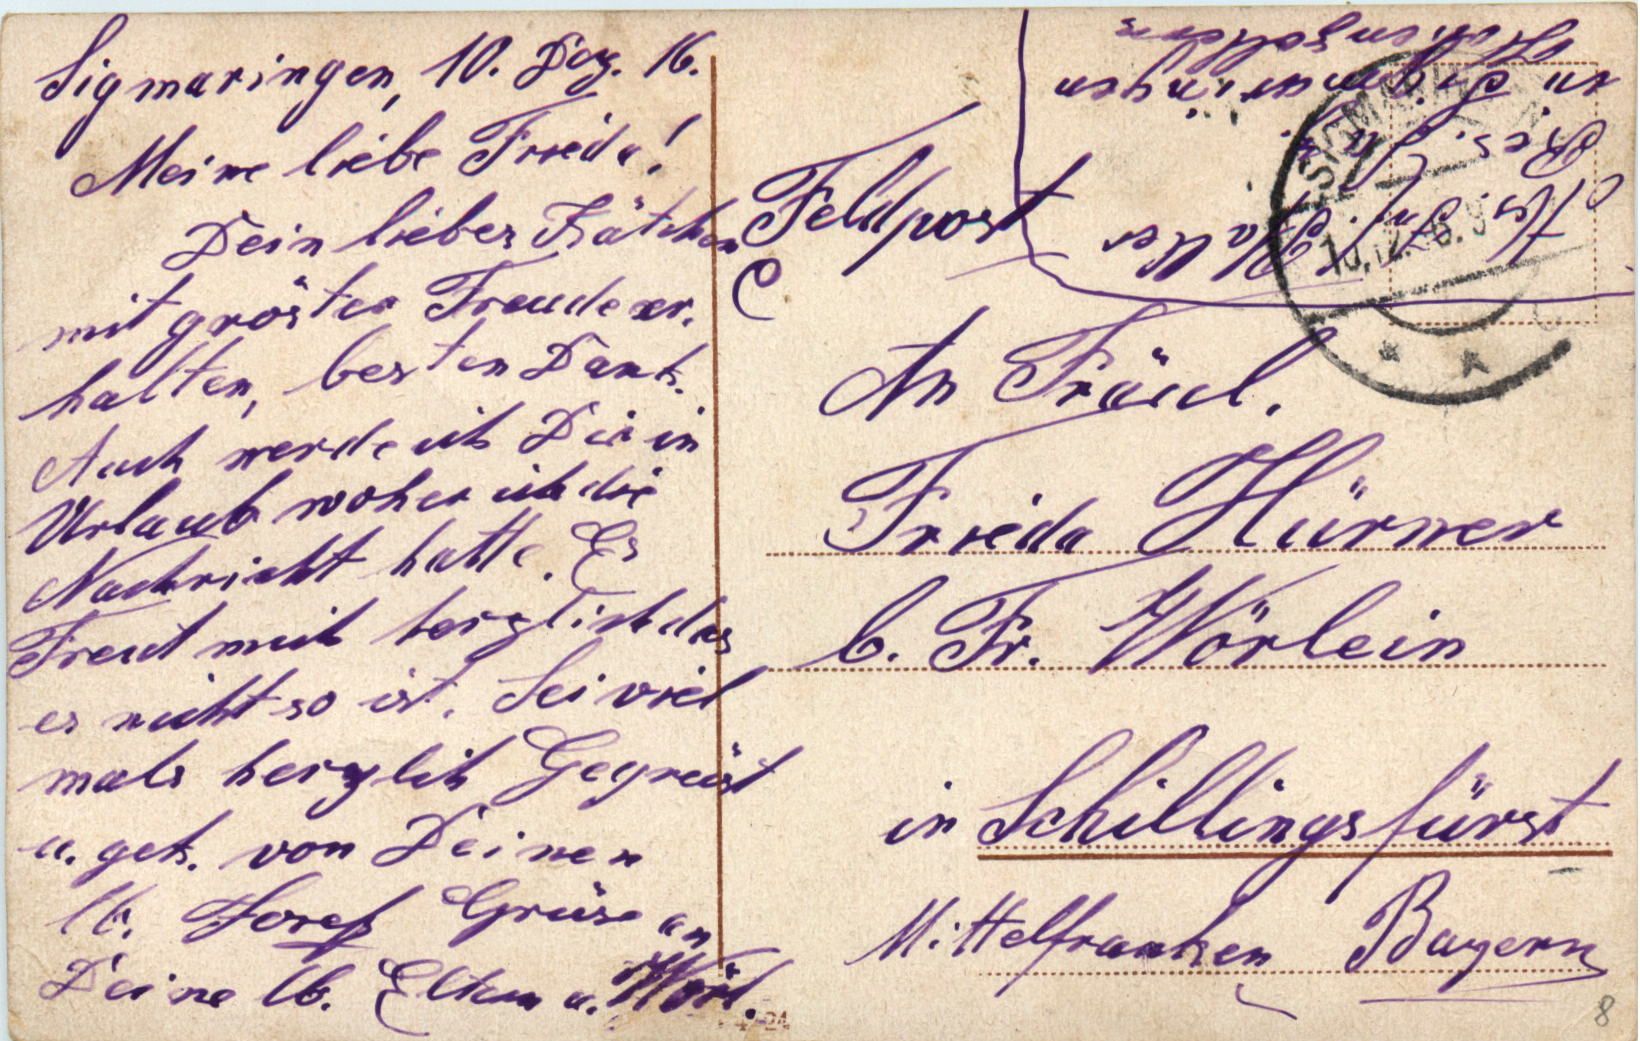 Sigmaringen, 10. Dez. 16.
Meine liebe Frieda!
Dein liebes Kätchen
mit gröster Freude er.
halten, besten Dank.
Auch werde ich Dir in
Urlaub woher ich die
Nachricht hatte. Es
Freut mich herzlich das
es nicht so ist. Sei viel
mals herzlich Gegrüst
u. gek. von Deinen
lb. Josef Grüse an
Deine lb. Eltern u. Wörl.
Feldpost
in Sigmaringen
Hohenzollern
An Fräul.
Frieda Hürner
b. Fr. Wörlein
in Schillingsfürst
Mittelfranken Bayern
SIGMARINGEN
8